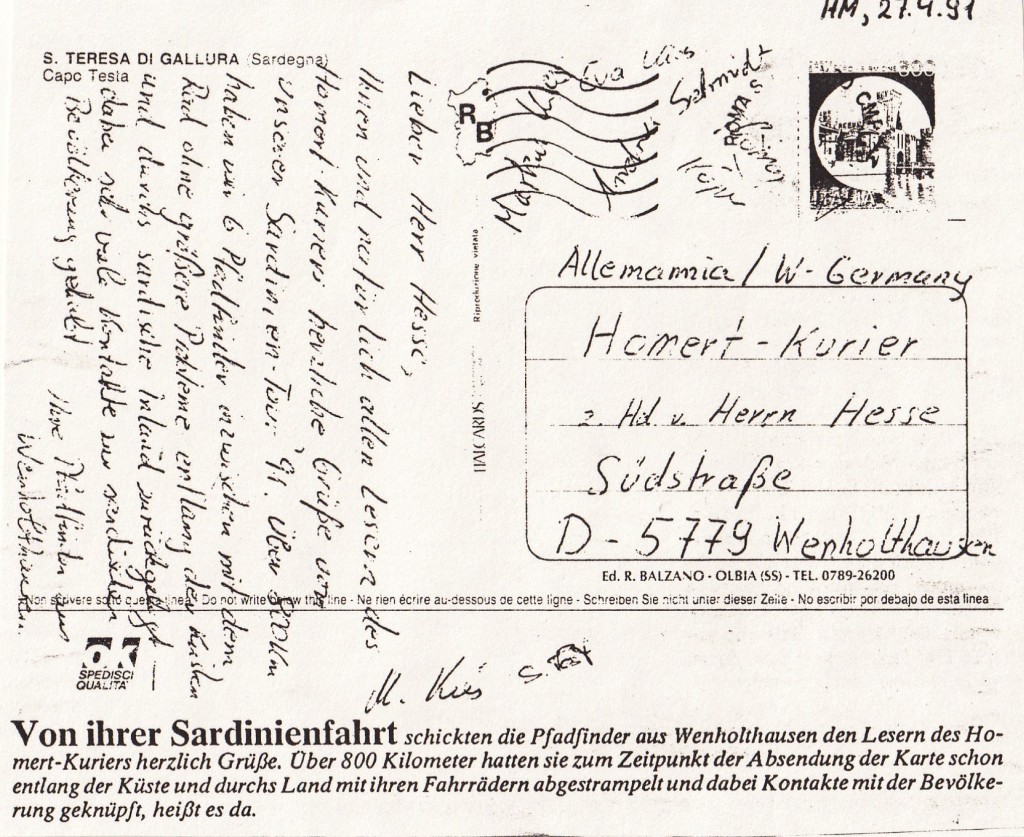 HM, 27.4.91
S. TERESA DI GALLURA (Sardegna)
Capo Testa
Lieber Herr Hesse,
Ihnen und natürlich allen Lesern des
Homert Kuriers herzliche Grüße von
unserer Sardinien-Tour '91. Über 800 km
haben wir 6 Pfadfinder inzwischen mit dem
Rad ohne größere Probleme entlang der Küsten
und durchs sardische Inland zurückgelegt
dabei viele Kontakte zur sardischen
Bevölkerung geknüpft
Ihre Pfadfinder aus
Wenholthausen.
RB
Eva
Schmidt
ROMA
600
ITALIA
Riproduzione vietata
Allemamia / W-Germany
Homert-Kurier
z. Hd. v. Herrn Hesse
Südstraße
D-5779 Wenholthausen
Ed. R. BALZANO - OLBIA (SS) - TEL. 0789-26200
Non scrivere sotto questa linea - Do not write below this line - Ne rien écrire au-dessous de cette ligne - Schreiben Sie nicht unter dieser Zeile - No escribir por debajo de esta linea
ok
SPEDISCI
QUALITA'
M. Kies
Von ihrer Sardinienfahrt schickten die Pfadfinder aus Wenholthausen den Lesern des Ho-
mert-Kuriers herzlich Grüße. Über 800 Kilometer hatten sie zum Zeitpunkt der Absendung der Karte schon
entlang der Küste und durchs Land mit ihren Fahrrädern abgestrampelt und dabei Kontakte mit der Bevölke-
rung geknüpft, heißt es da.